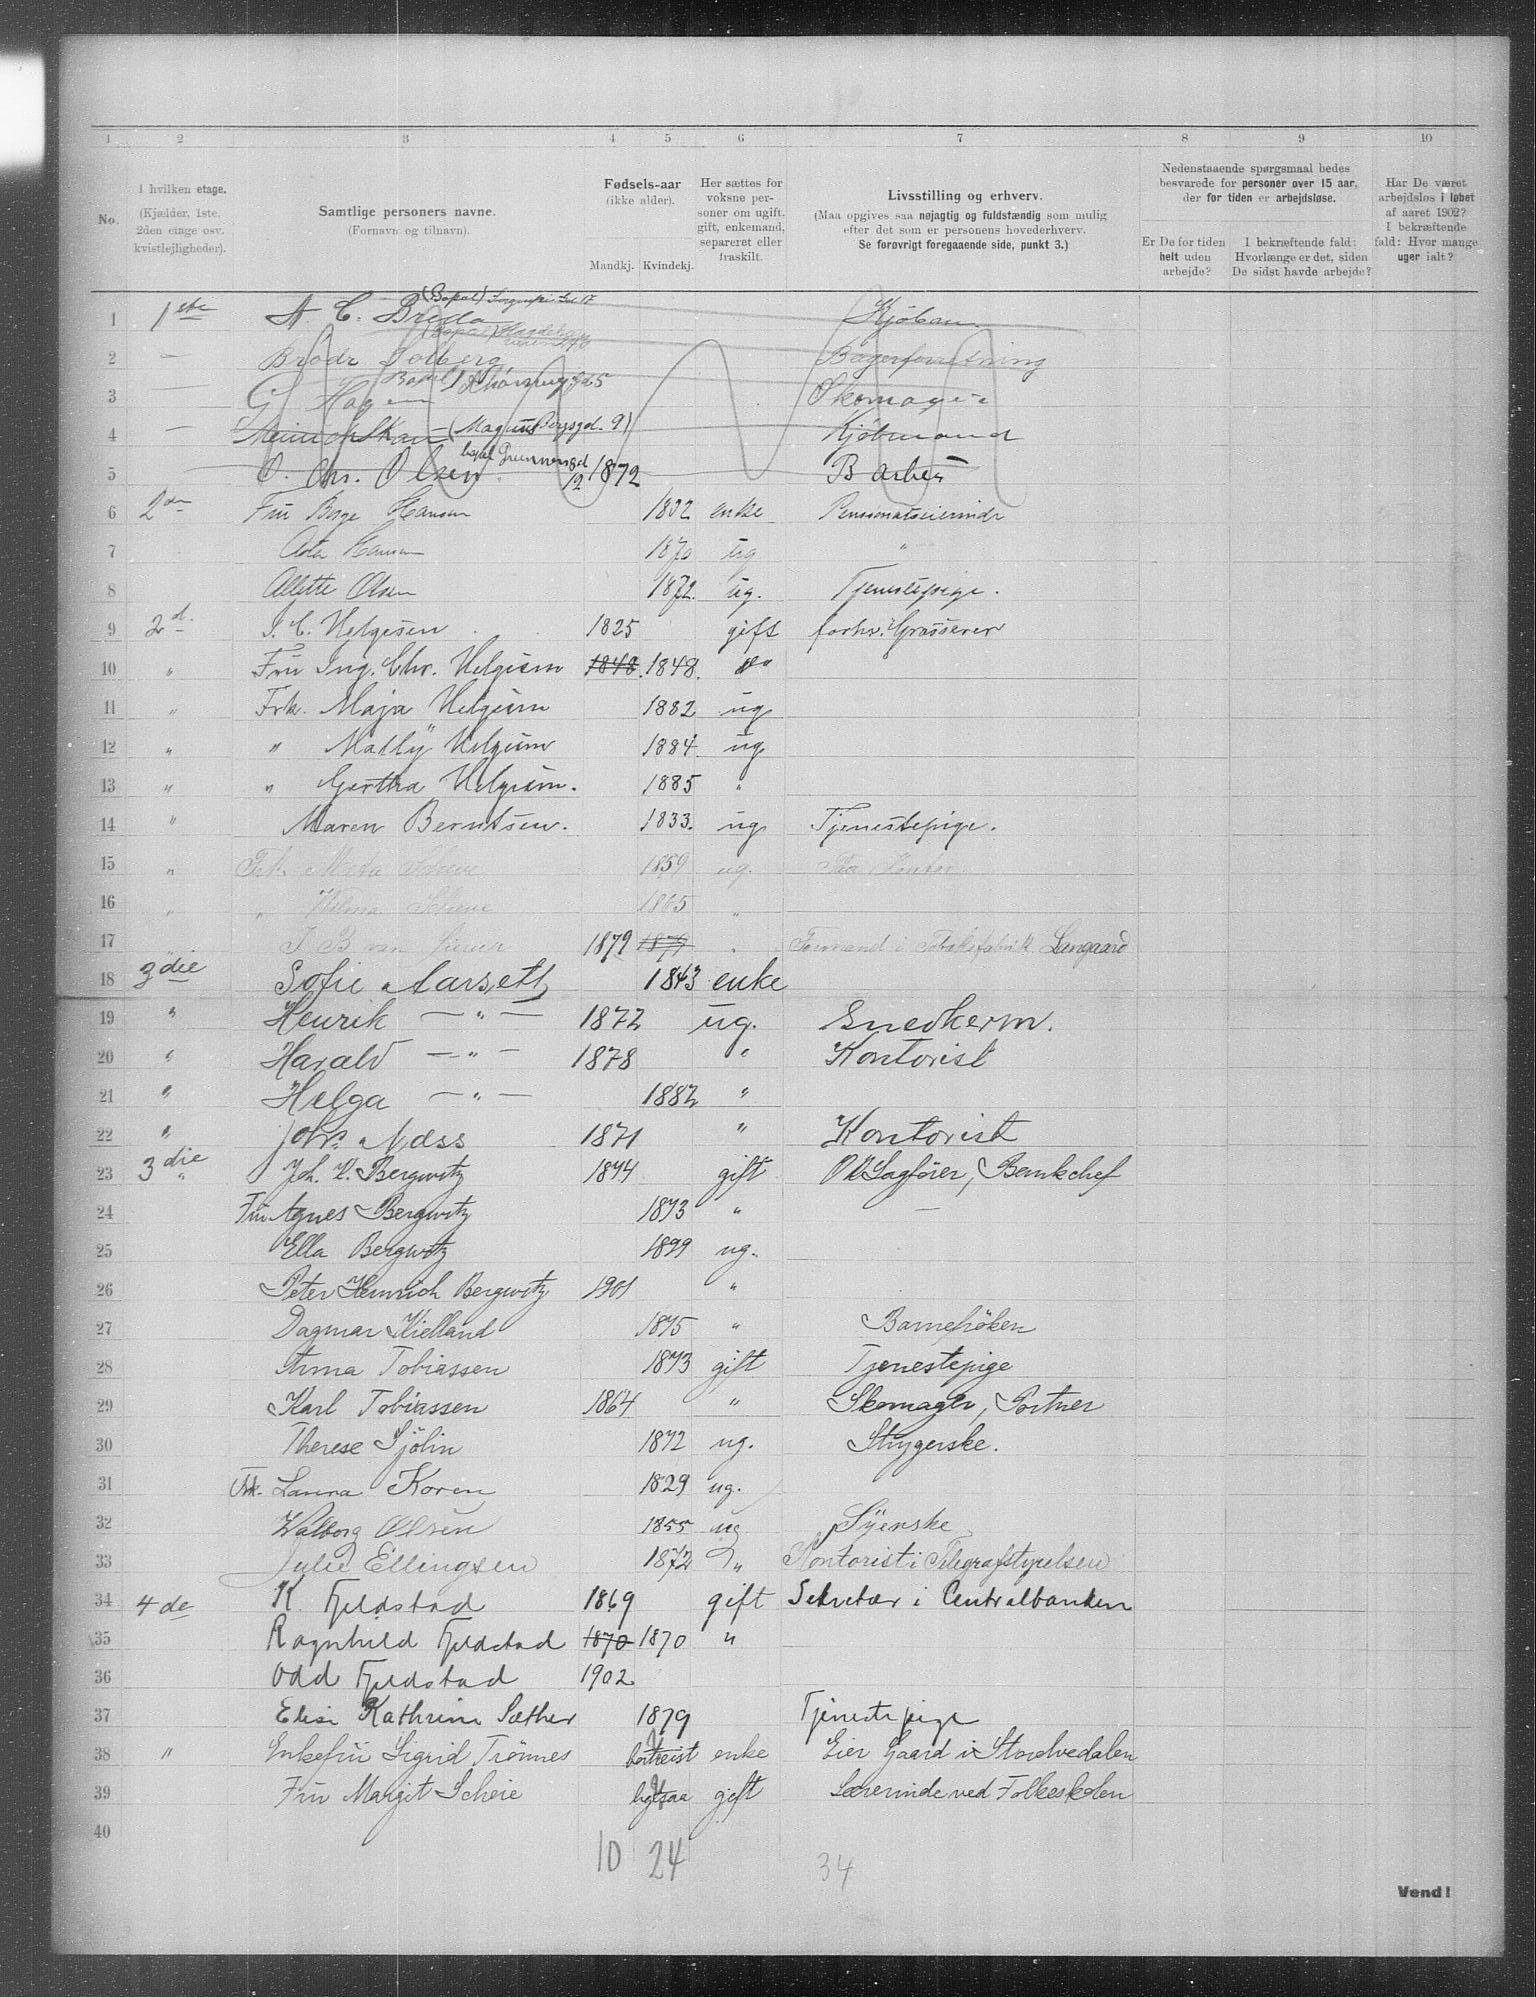 1 2 3 4 5 6 7 8 9 10
No.
I hvilken etage.
(Kjælder, 1ste,
2den etage osv.
kvistlejligheder).
Samtlige personers navne.
(Fornavn og tilnavn).
Fødsels-aar
(ikke alder).
Mandkj. Kvindekj.
Her sættes for
voksne per-
soner om ugift,
gift, enkemand,
separeret eller
fraskilt.
Livsstilling og erhverv.
(Maa opgives saa nøjagtig og fuldstændig som mulig
efter det som er personens hovederhverv.
Se forøvrigt foregaaende side, punkt 3.)
Nedenstaaende spørgsmaal bedes
besvarede for personer over 15 aar,
der for tiden er arbejdsløse.
Er De for tiden
helt uden
arbejde?
I bekræftende fald:
Hvorlænge er det, siden
De sidst havde arbejde?
Har De været
arbejdsløs i løbet
af aaret 1902?
I bekræftende
fald: Hvor mange
uger ialt?
1 1ste A. C. Breda (Bopæl) 17 Kjøbm.
2 — Brødr. Solberg (Bopæl) Bagerforretning
3 — G. Hagen Bopæl Skomager
4 — (Magnus Bergsgd. 9) Kjøbmand
5 O. Chr. Olsen bopæl 12 1872 Barber
6 2den Fru Borge Hansen 1832 enke Pensionatseierinde
7 Hansen 1870 ug "
8 Allette Olsen 1872. ug. Tjenestepige.
9 2d. I. C. Helgesen 1825 gift forhv. Grosserer
10 " Fru Ing. Chr. Helgesen 1848. 1848. "
11 " Frk. Maja Helgesen 1882 ug
12 " " Mally Helgesen 1884. ug
13 " " Gertha Helgesen. 1885 "
14 " Maren Berntsen. 1833. ug Tjenestepige.
15 " Frk. Meta 1859 ug. Paa Kontor
16 " " 1865 "
17 J B van 1879 1879 " Formand i Tobaksfabrik Langaard
18 3die Sofie Aarseth 1843 enke
19 " Henrik — " — 1872 ug. Snedkerm.
20 " Harald — " — 1878 " Kontorist
21 " Helga — " — 1882 "
22 " Joh. Næss 1871 " Kontorist
23 3die " Joh. H. Bergwitz 1874 gift O R Sagfører, Bankchef
24 Fru Agnes Bergwitz 1873 " —
25 Ella Bergwitz 1899 ug.
26 Peter Heinrich Bergwitz 1901 "
27 Dagmar Kielland 1875 " Barnefrøken
28 Anna Tobiassen 1873 gift Tjenestepige
29 Karl Tobiassen 1864 " Skomager, Portner
30 Therese Sjölin 1872 ug. Strygerske.
31 Frk. Laura Koren 1829 ug.
32 Walborg Olsen 1855 ug Syerske
33 Julie Ellingsen 1872 " Kontorist i Telegrafstyrelsen
34 4de K. Fjeldstad 1869 gift Sekretær i Centralbanken
35 Ragnhild Fjeldstad 1870 1870 "
36 Odd Fjeldstad 1902
37 Elise Kathrine Sæther 1879 Tjenestepige
38 " Enkefru Sigrid Trønnes bortreist enke Eier Gaard i Størdvedalen
39 Fru Margit Scheie ligesaa gift Lærerinde ved Folkeskolen
40
10 24 34
Vend!